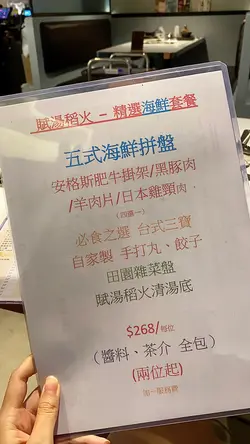 賦湯稻火 – 精選海鮮套餐
五式海鮮拼盤
安格斯肥牛掛架/黑豚肉
/羊肉片/日本雞頸肉
(四選一)
必食之選 台式三寶
自家製 手打丸、餃子
田園雜菜盤
賦湯稻火清湯底
$268/每位
(醬料、茶介 全包)
(兩位起)
加一服務費